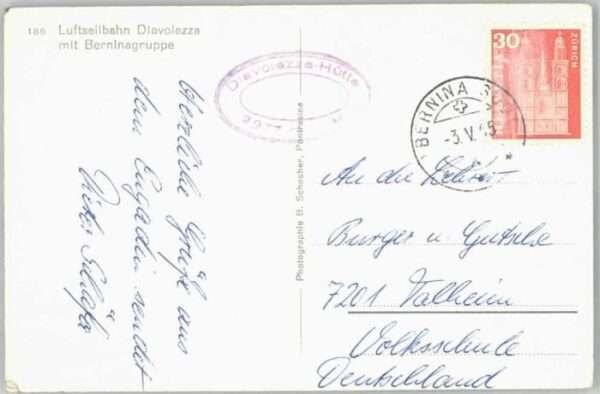 186 Luftseilbahn Diavolezza
mit Berninagruppe
Diavolezza-Hütte
Herzliche Grüße aus
dem Engadin sendet
Photographie B. Schocher, Pontresina
30
ZÜRICH
BERNINA
-3.V.65
An die
Burger u. Gutsche
7201 Talheim
Volksschule
Deutschland